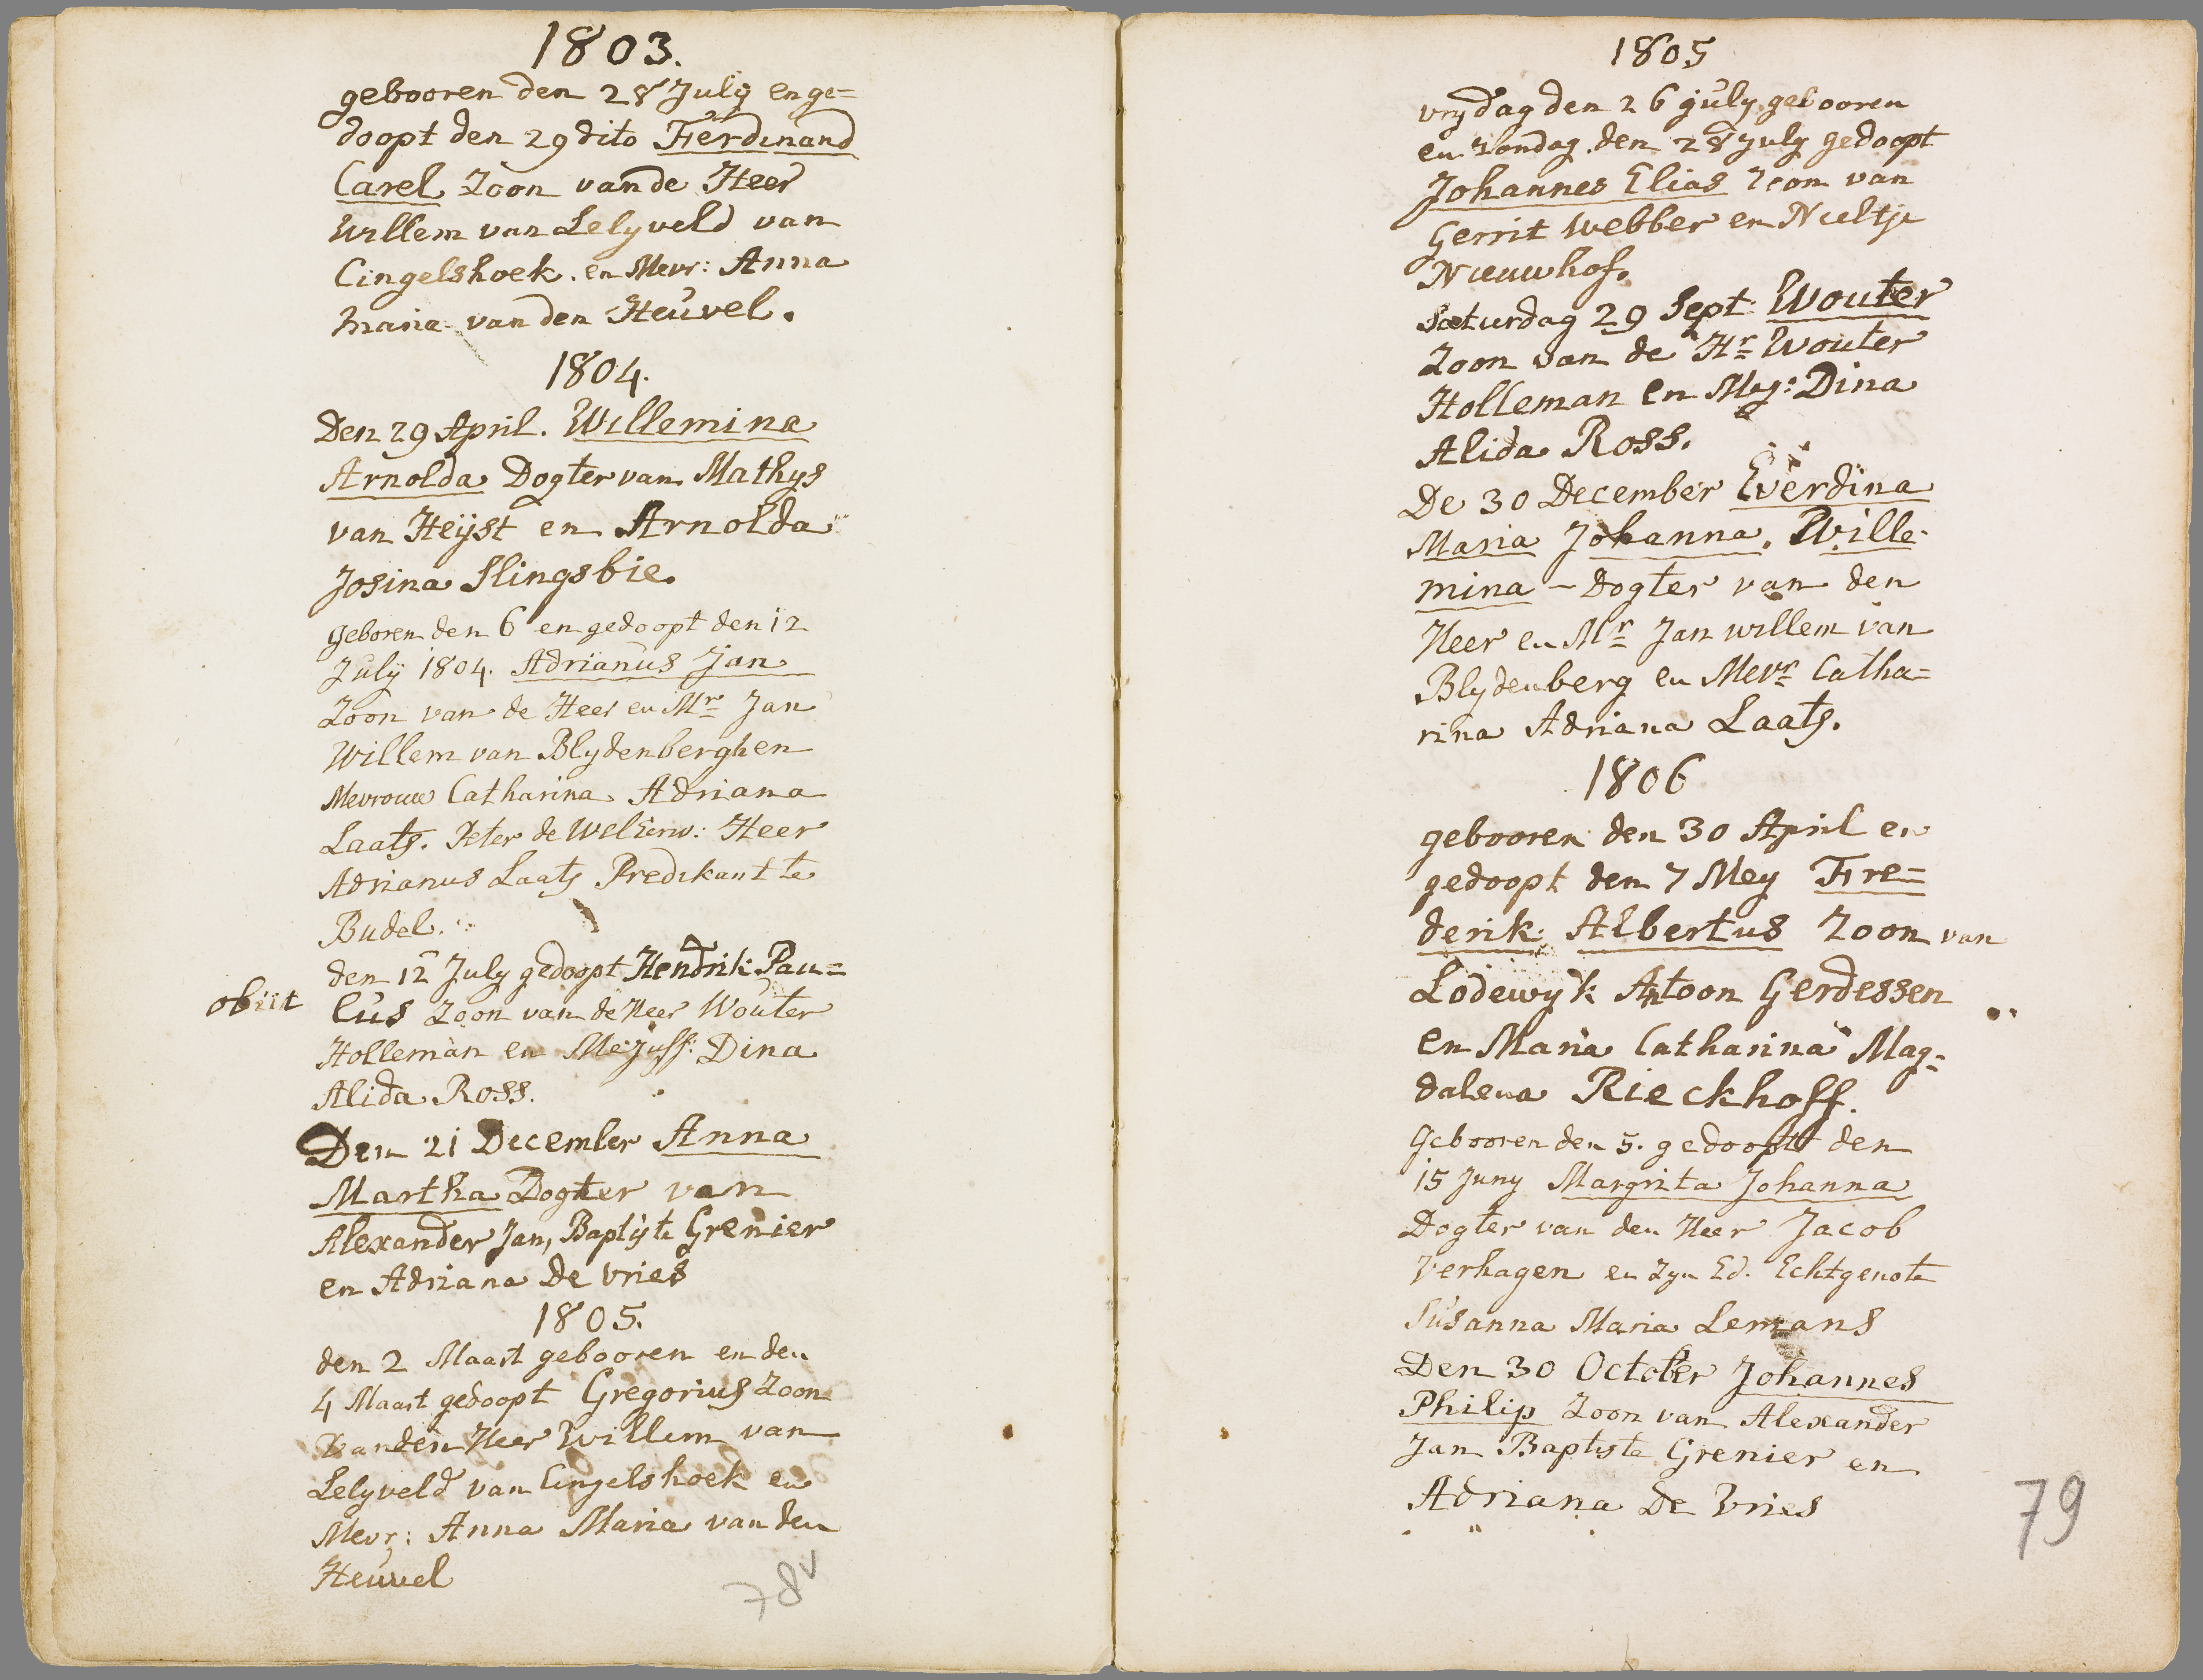 1803.
gebooren den 28 July en ge=
doopt den 29 dito Ferdinand
Carel Zoon van de Heer
Willem van Lelyveld van
Cingelshoek. en Mevr: Anna
maria van den Heuvel.
1804.
Den 29 April. Willemina
Arnolda Dogter van Mathys
van Heÿst en Arnolda
Josina Slingsbie.
Geboren den 6 en gedoopt den 12
Julÿ 1804. Adrianus Jan
Zoon van de Heer en Mr Jan
Willem van Blydenberghen
Mevrouw Catharina Adriana
Laats. Peter de WelEerw: Heer
Adrianus Laats Predikant te
Budel.
den 12 July gedoopt Hendrik Pau=
obiit lus Zoon van de Heer Wouter
Holleman en Mejuff: Dina
Alida Ross.
Den 21 December Anna
Martha Dogter van
Alexander Jan, Baptiste Grenier
en Adriana De Vries
1805.
den 2 Maart gebooren en den
4 Maart gedoopt Gregorius Zoon
van den Heer Willem van
Lelyveld van Cingelshoek en
Mevr: Anna Maria van den
Heuvel
78v
1805
vrydag den 26 july gebooren
en zondag den 28 July gedoopt
Johannes Elias Zoon van
Gerrit Webber en Neeltje
Nieuwhof.
Saturdag 29 Sept: Wouter
Zoon van de Hr Wouter
Holleman en Mej: Dina
Alida Ross.
De 30 December Everdina
Maria Johanna, Wille-
mina - Dogter van den
Heer en Mr Jan willem van
Blydenberg en Mevr Catha=
rina Adriana Laats.
1806
gebooren den 30 April en
gedoopt den 7 Mey Fre=
derik Albertus Zoon van
Lodewyk Antoon Gerdessen
en Maria Catharina Mag=
dalena Rieckhoff.
Gebooren den 5. gedoopt den
15 Juny Margrita Johanna
Dogter van den Heer Jacob
Verhagen en Zyn Ed. Echtgenote
Susanna Maria Lemans
Den 30 October Johannes
Philip Zoon van Alexander
Jan Baptiste Grenier en
Adriana De Vries
79